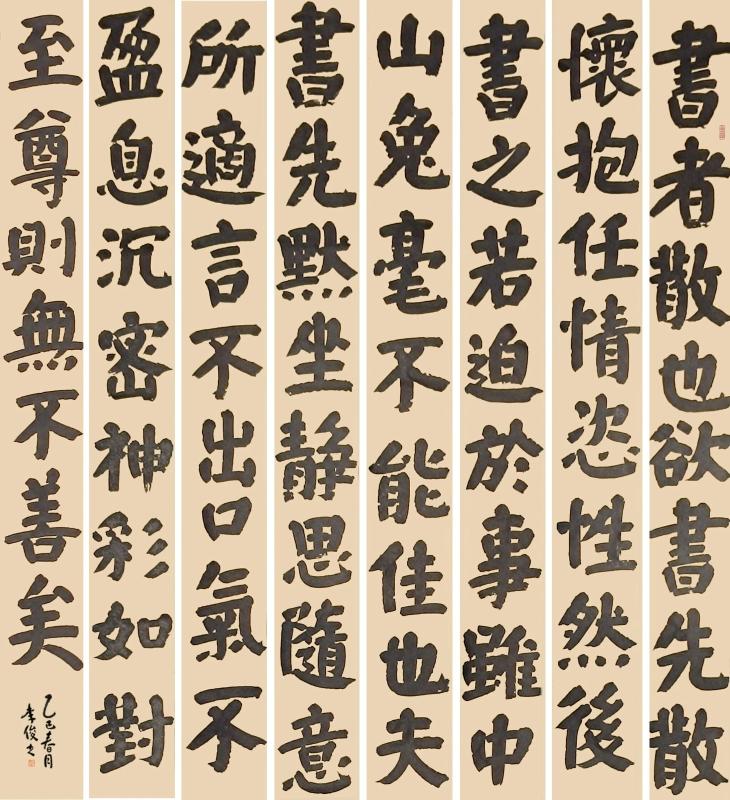 書者散也欲書先散
懷抱任情恣性然後
書之若迫於事雖中
山兔毫不能佳也夫
書先默坐静思隨意
所適言不出口氣不
盈息沉密神彩如對
至尊則無不善矣
乙巳春月
李俊之